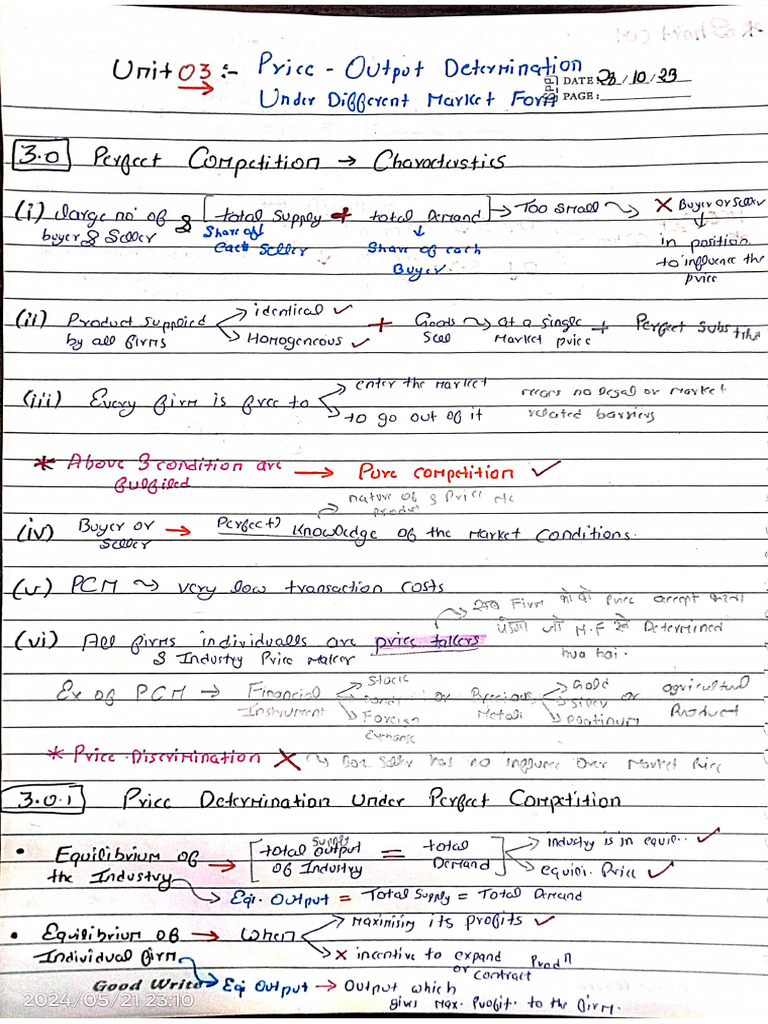 Unit 03 :- Price - Output Determination
DATE: 23/10/23
Under Different Market Form
PAGE:
3.0 Perfect Competition → Characterstics
(i) Large no. of buyer & Seller & [total Supply + total Demand] → Too Small → × Buyer or Seller
Share of Each Seller Share of each Buyer in position to influence the price
(ii) Product Supplied by all firms identical ✓ + Goods Sell at a single Market price + Perfect Substitu
Homogeneous ✓
(iii) Every firm is free to enter the Market means no legal or market
to go out of it related barriers
* Above 3 condition are fulfilled → Pure Competition ✓
nature of product & Price etc
(iv) Buyer or Seller → Perfect Knowledge of the Market Conditions.
(v) PCM → very low transaction costs
Firm को वो Price accept करना
(vi) All firms individualls are price takers पड़ेगा जो M.F से Determined
& Industry Price Maker hua hai.
Ex of PCM → Financial Instrument Stock Foreign Exchange or Precious Metals Gold Silver Platinum or agricultural Product
* Price Discrimination × Seller has no influence over Market Price
3.0.1 Price Determination Under Perfect Competition
• Equilibrium of the Industry → [total output Supply of Industry = total Demand] Industry is in equil.. ✓
equili. Price ✓
Eqi. Output = Total Supply = Total Demand
• Equilibrium of Individual firm → When Maximising its profits ✓
× incentive to expand or contract Prodⁿ
Good Write Eqi Output → Output which
gives Max. Profit to the firm.
2024/05/21 23:10